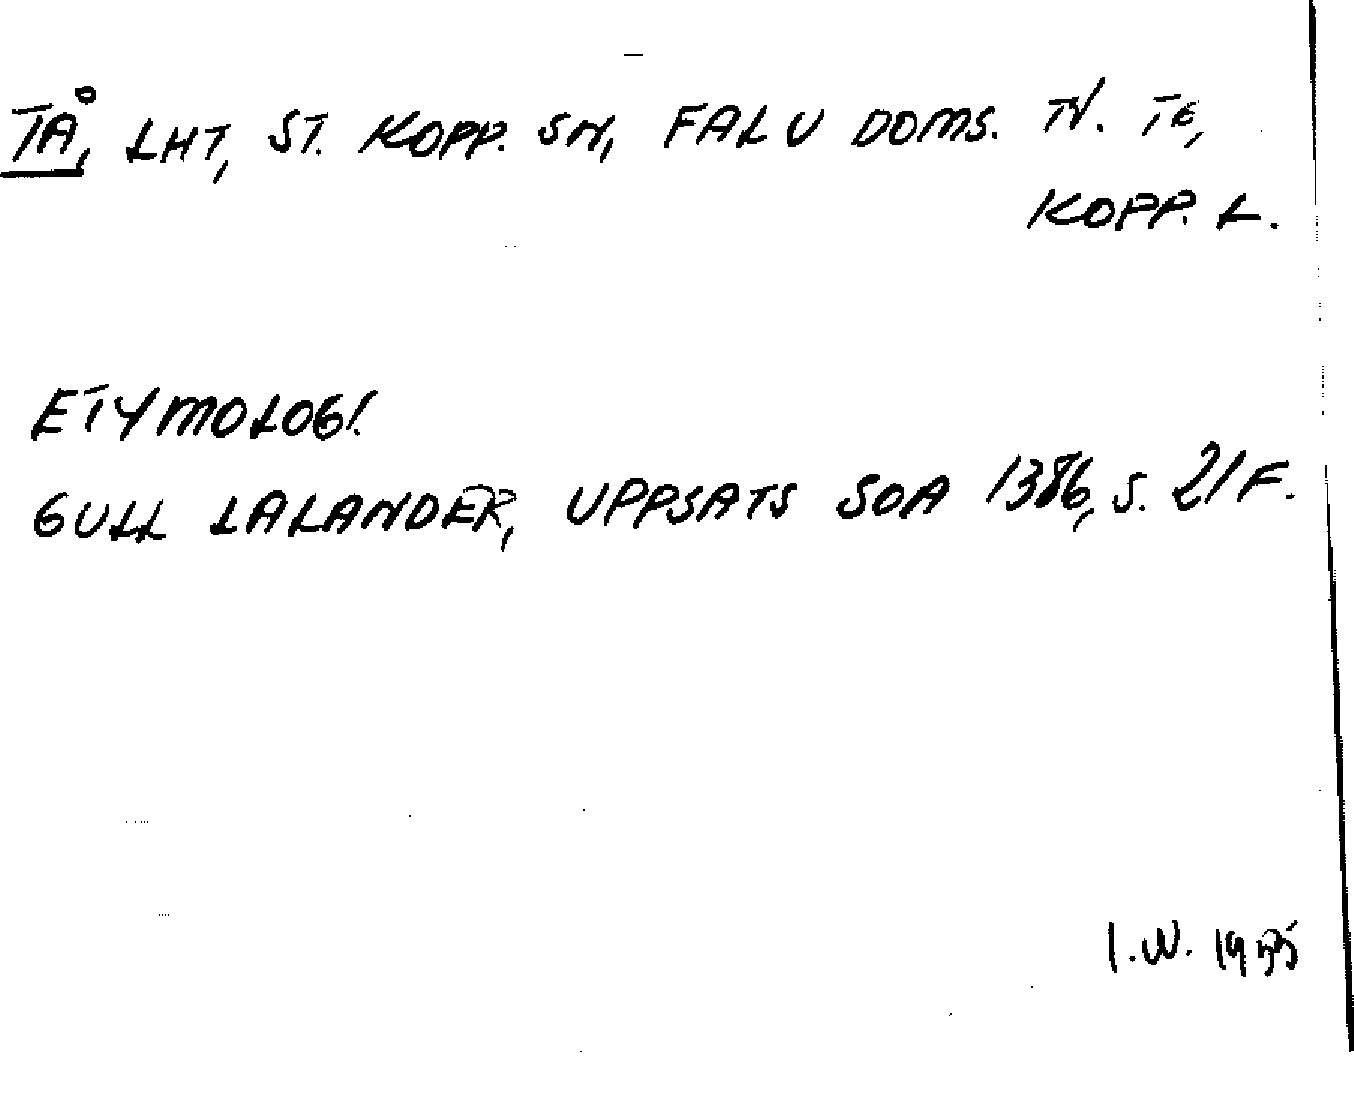 TÅ, LHT, ST. KOPP. SN, FALU DOMS. TV. TG,
KOPP. L.
ETYMOLOGI.
GULL LALANDER, UPPSATS SOA 1386, S. 21 F.
I.W.